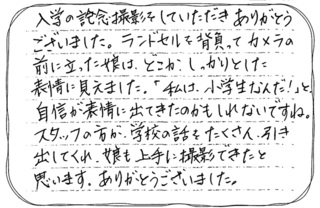 入学の記念撮影をしていただきありがとう
ございました。ランドセルを背負ってカメラの
前に立った娘は、どこかしっかりとした
表情に見えました。「私は、小学生なんだ!」と、
自信が表情に出てきたのかもしれないですね。
スタッフの方が、学校の話をたくさん引き
出してくれ、娘も上手に撮影できたと
思います。ありがとうございました。